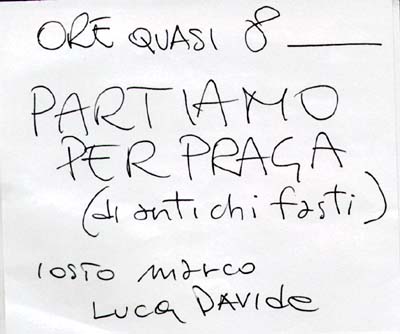 ORE QUASI 8 ____
PARTIAMO
PER PRAGA
(di antichi fasti)
IOSTO marco
LUCA DAVIDE